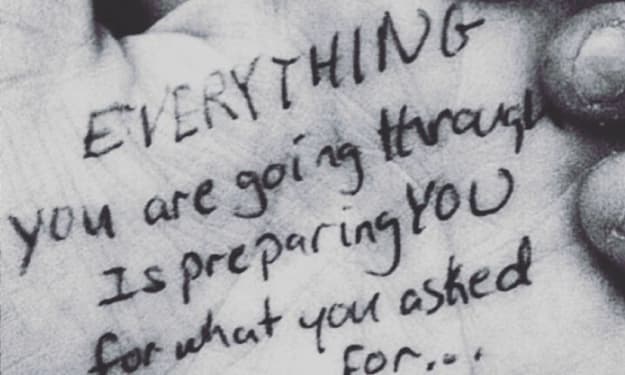 EVERYTHING
you are going through
Is preparing YOU
for what you asked
for...